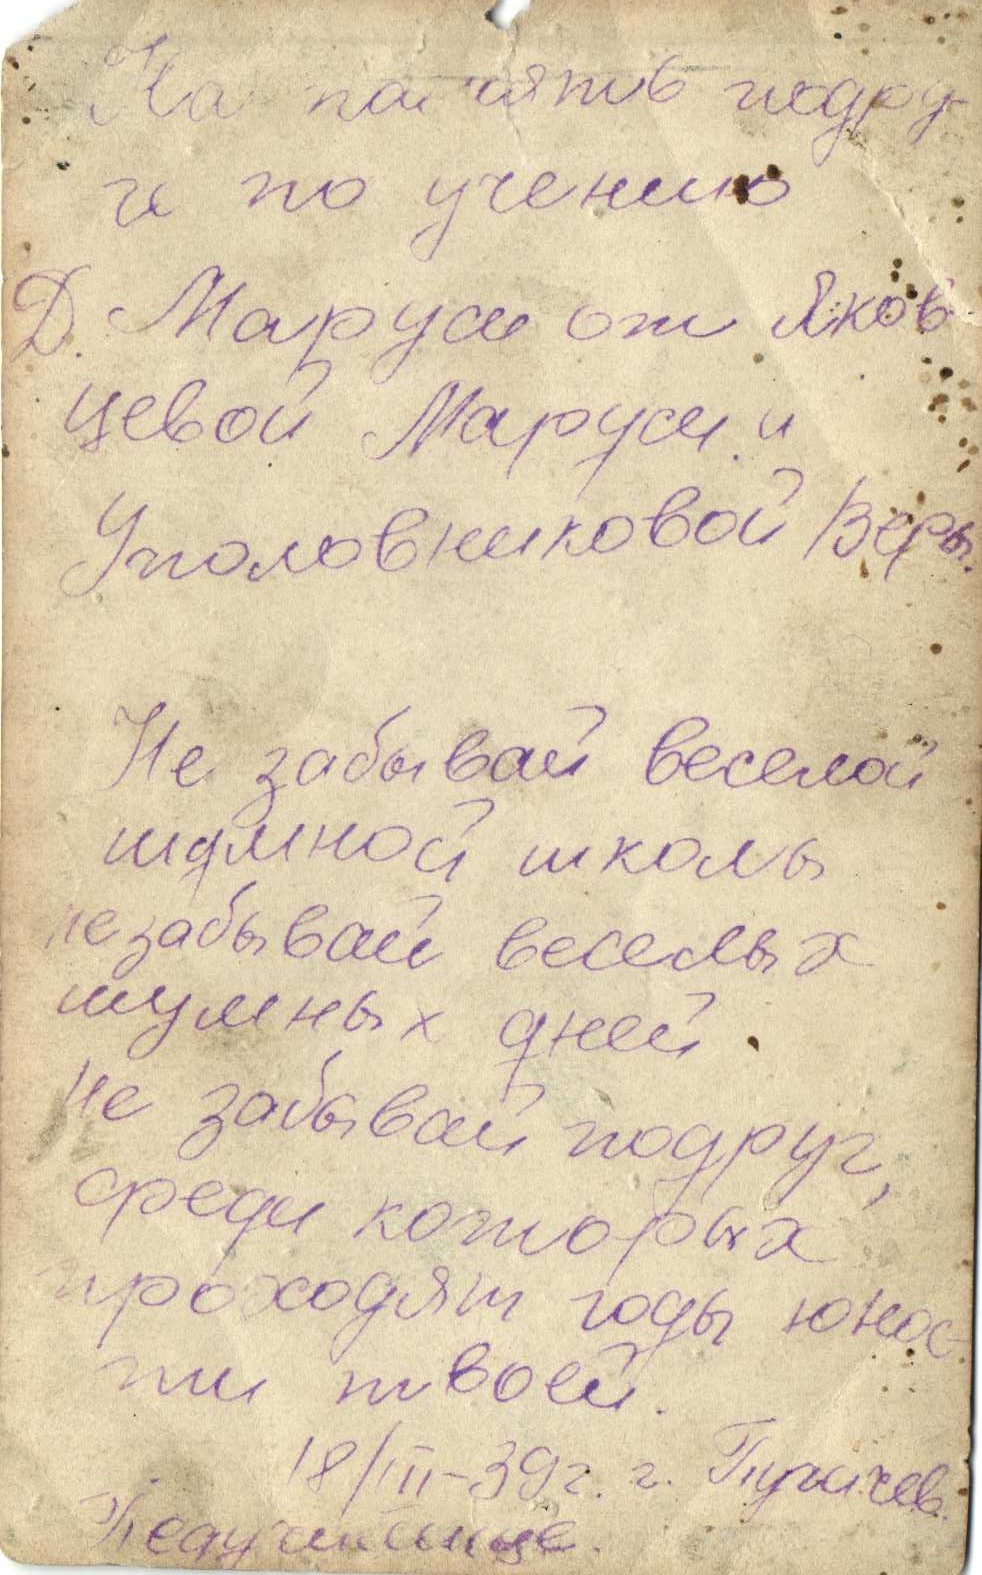 На память подру-
ги по учению
Д. Маруси от Яков
цевой Маруси и
Уполовниковой Веры.
Не забывай веселой
шумной школы
незабывай веселых
шумных дней.
Не забывай подруг,
среди которых
проходят годы юнос-
ти твоей.
18/III-39г. г. Пугачев.
Педучилище.